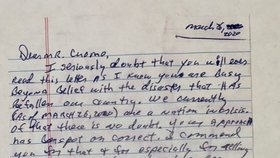 March 26,
2020
Dear Mr. Cuomo,
I seriously doubt that you will ever
read this letter as I know you are busy
beyond belief with the disaster that has
befallen our country. We currently
(as of March 26, 2020) are a nation in crisis.
Of that there is no doubt. Your approach
has been spot on correct. I commend
you for that & for especially for telling